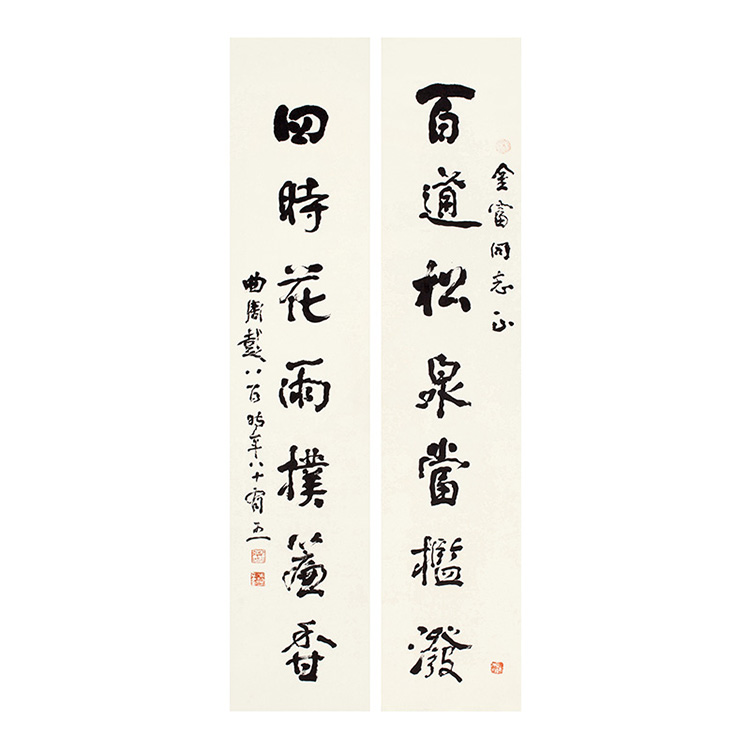 金富同志正
百道松泉當檻潑
四時花雨撲簾香
曲周彭八百時年八十有五